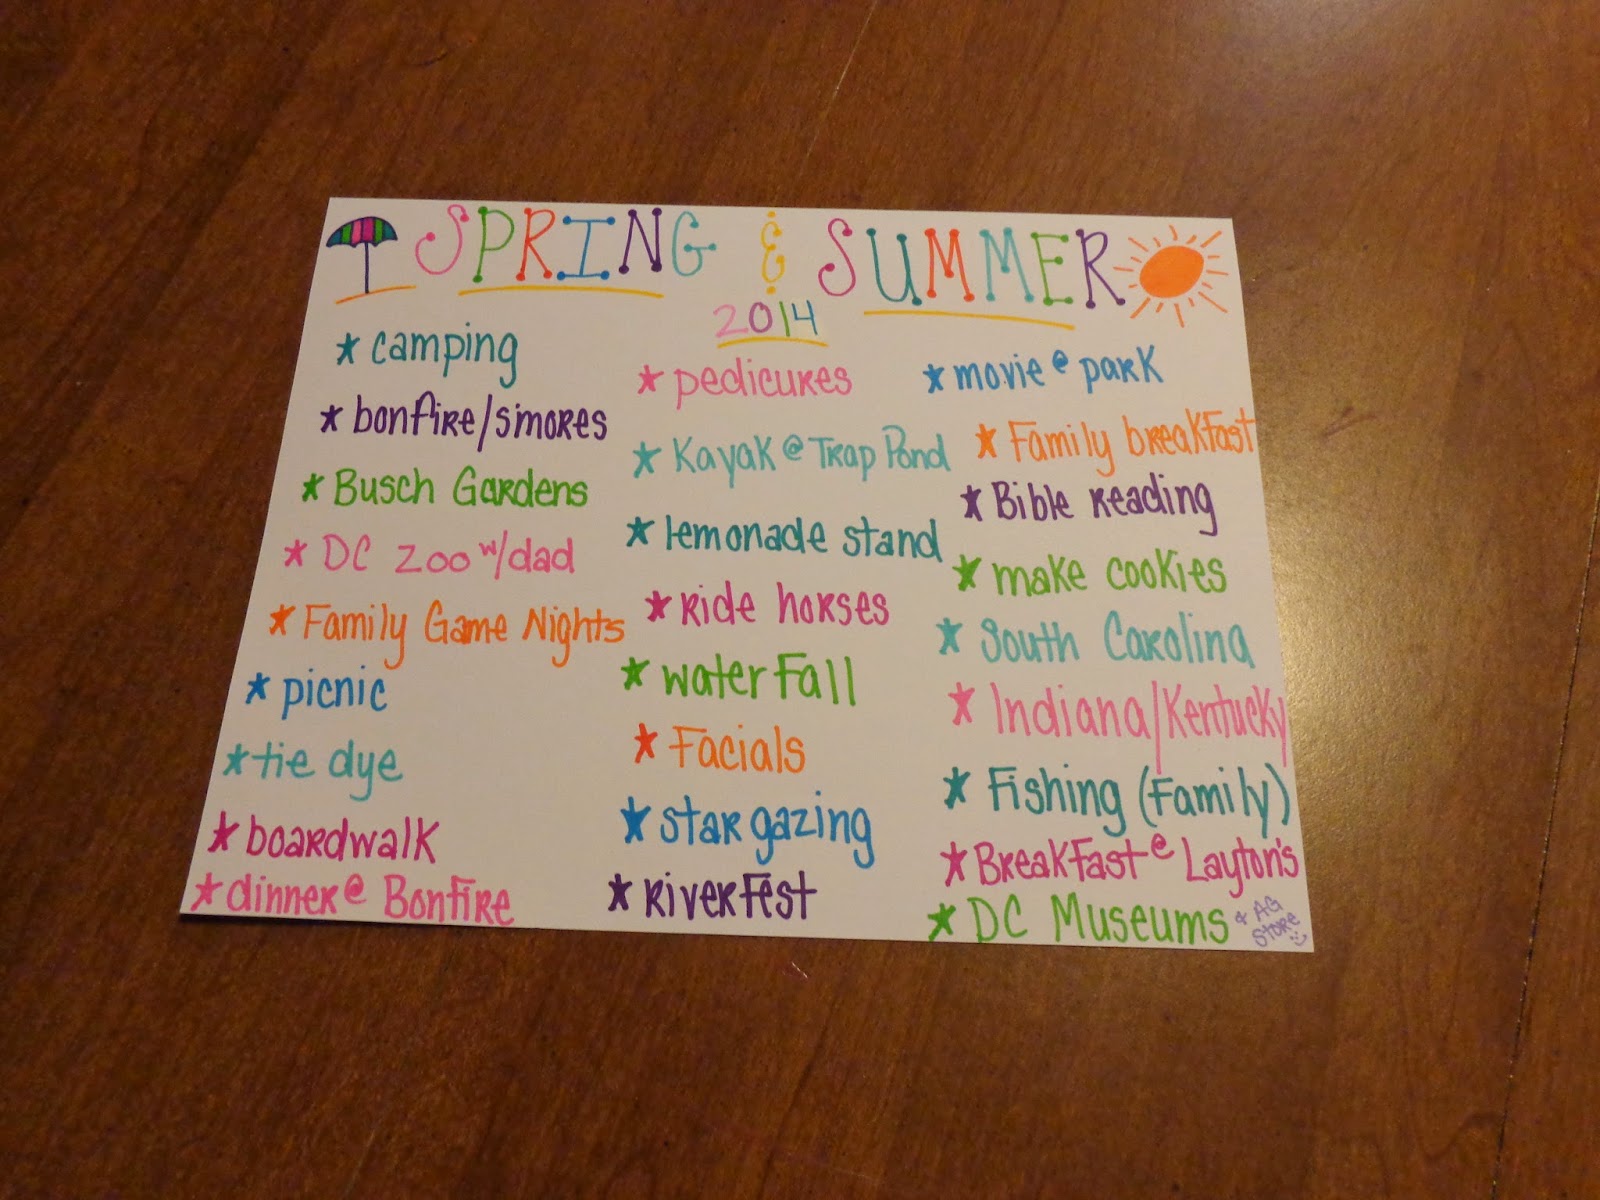 SPRING & SUMMER
2014
* camping
* bonfire/smores
* Busch Gardens
* DC Zoo w/dad
* Family Game Nights
* picnic
* tie dye
* boardwalk
* dinner @ Bonfire
* pedicures
* Kayak @ Trap Pond
* lemonade stand
* ride horses
* waterfall
* Facials
* star gazing
* riverfest
* movie @ park
* Family breakfast
* Bible reading
* make cookies
* South Carolina
* Indiana/Kentucky
* Fishing (Family)
* Breakfast @ Layton's
* DC Museums & AG
STORE